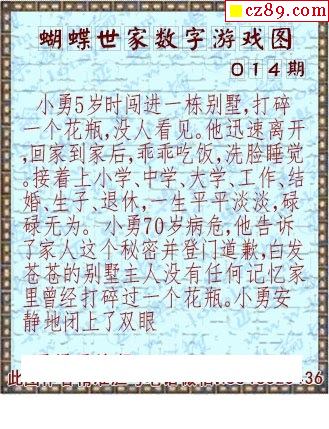 cz89.com
蝴蝶世家数字游戏图
014期
小勇5岁时闯进一栋别墅,打碎
一个花瓶,没人看见。他迅速离开
,回家到家后,乖乖吃饭,洗脸睡觉
。接着上小学、中学、大学、工作、结
婚、生子、退休,一生平平淡淡,碌
碌无为。 小勇70岁病危,他告诉
了家人这个秘密并登门道歉,白发
苍苍的别墅主人没有任何记忆家
里曾经打碎过一个花瓶。小勇安
静地闭上了双眼